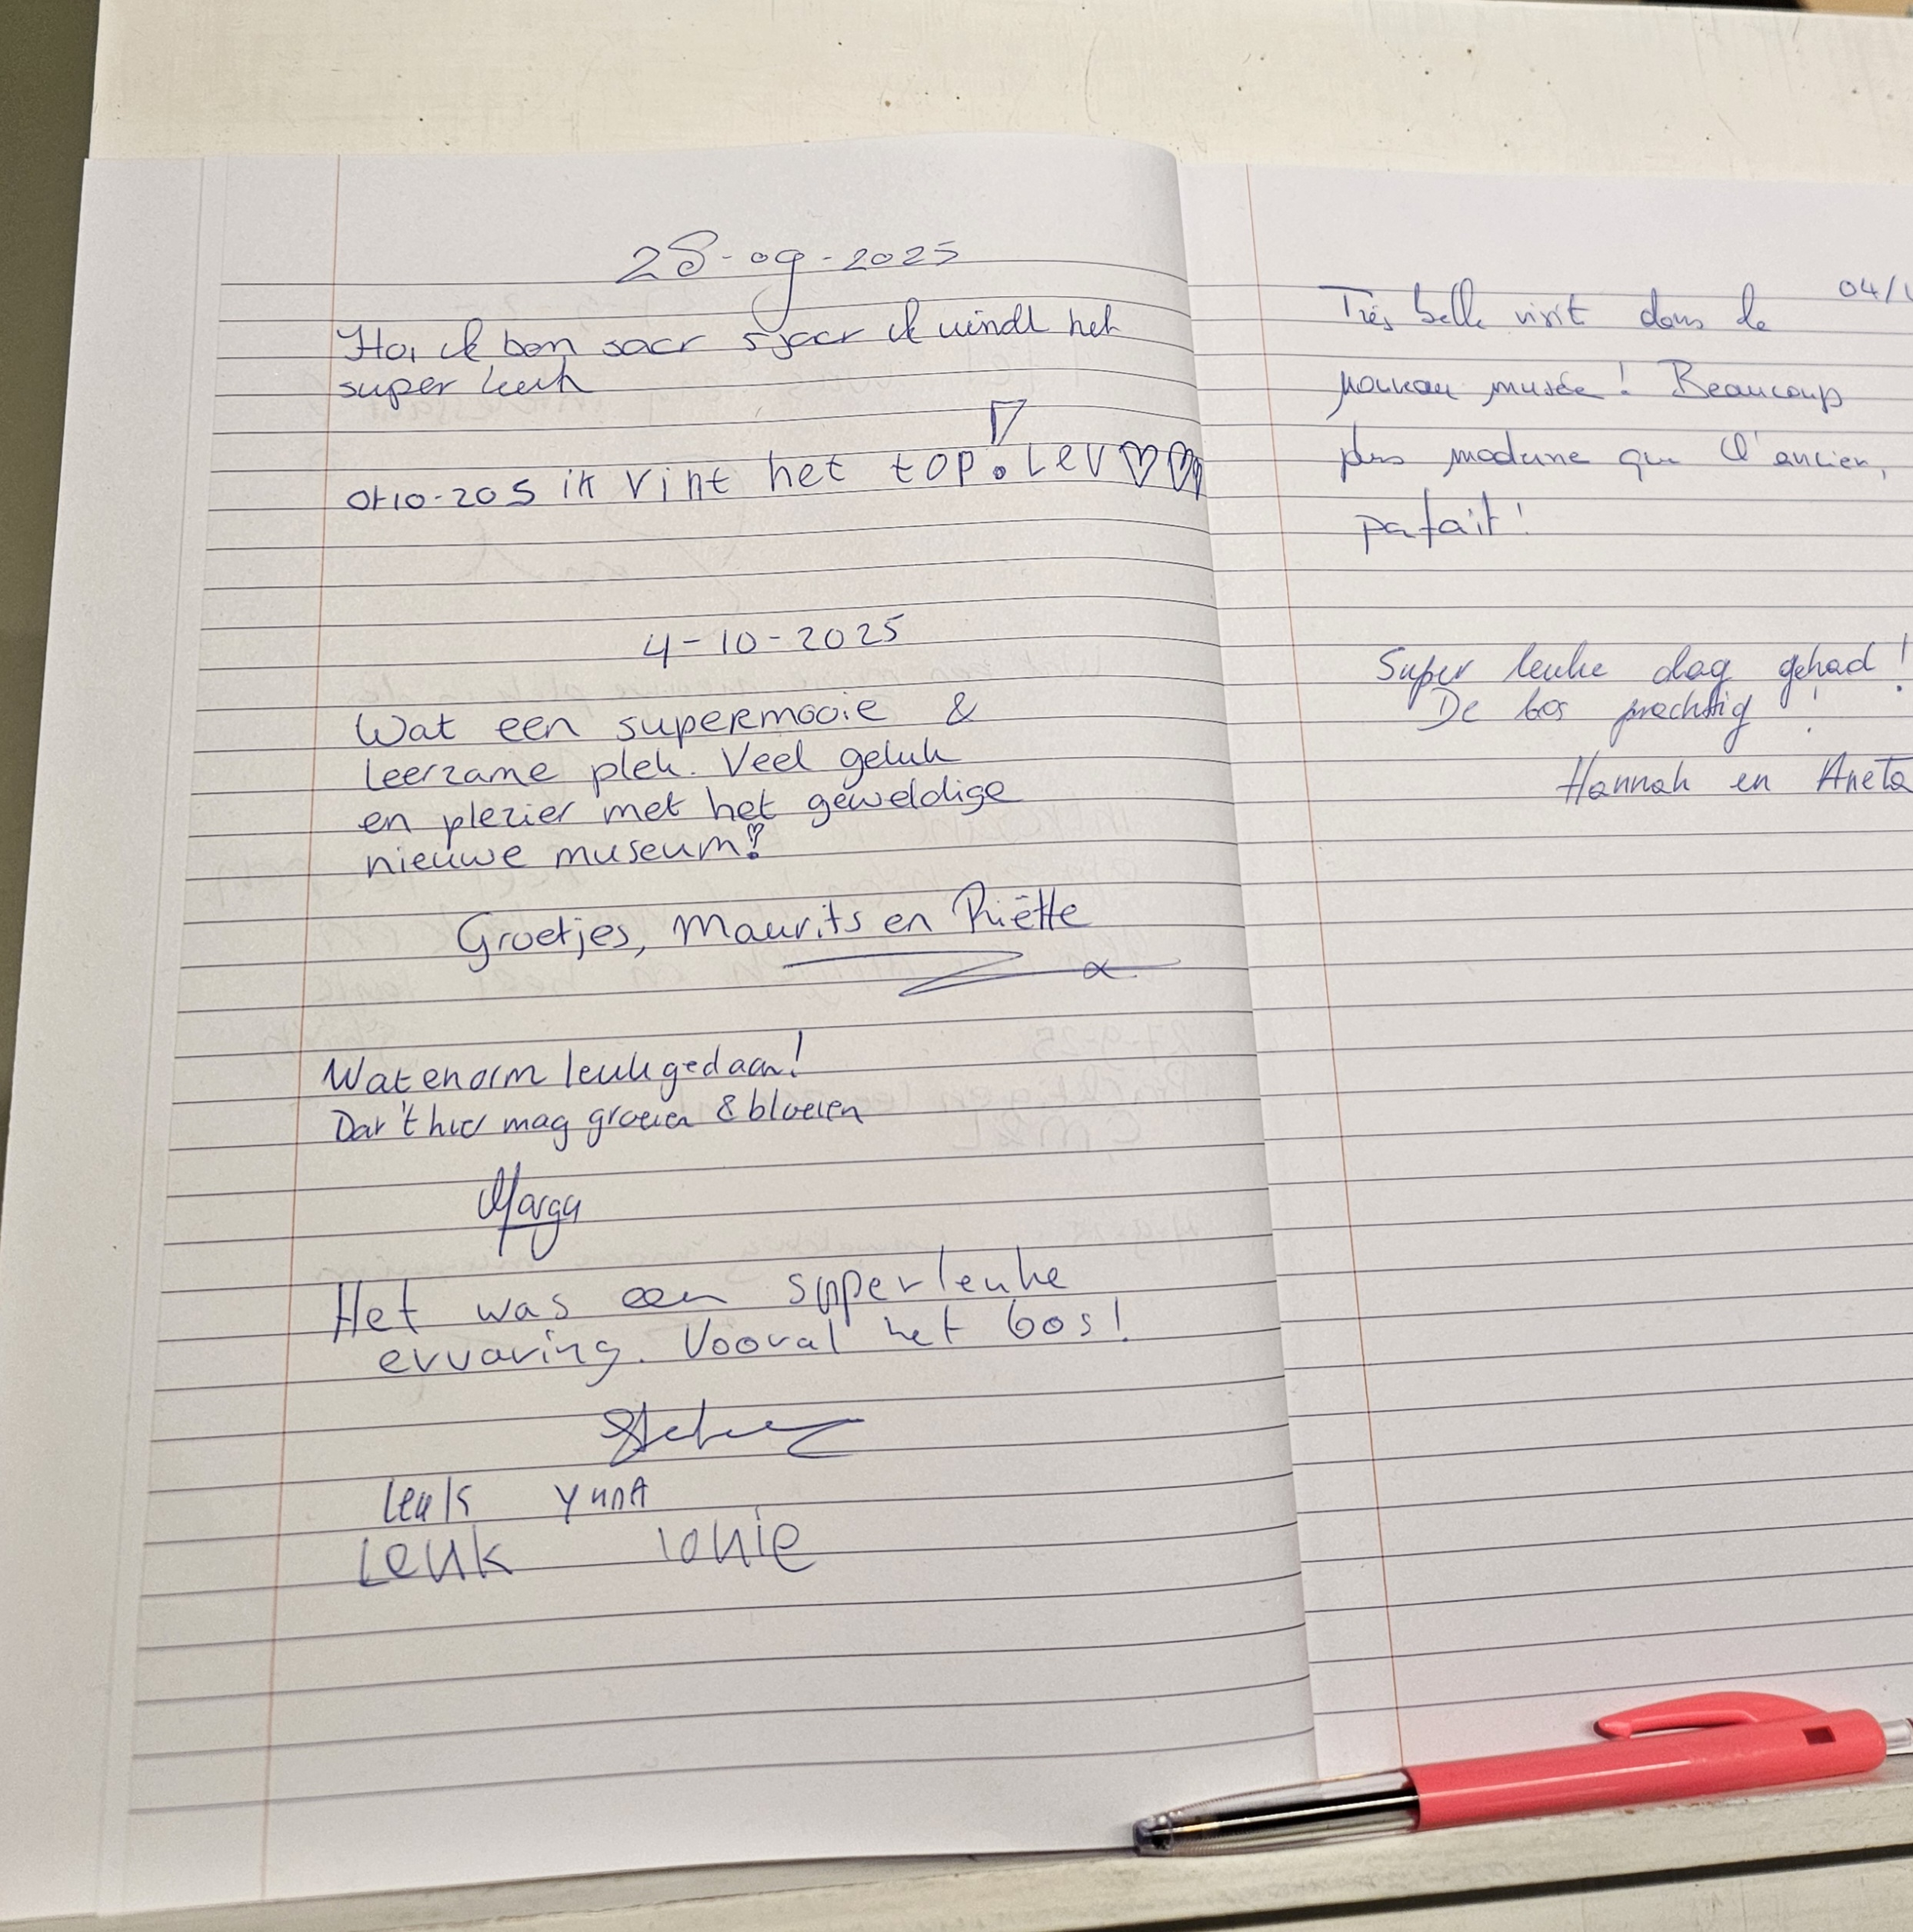 28-09-2025
Hoi ik ben saar ik vindt het
super leuk
ik vint het top! Lev
4-10-2025
Wat een supermooie &
leerzame plek. Veel geluk
en plezier met het geweldige
nieuwe museum!
Groetjes, Maurits en Riëtte
Wat enorm leuk gedaan!
Dat 't hier mag groeien & bloeien
Het was een superleuke
ervaring. Vooral het bos!
leuk Yuna
Leuk
04/
Très belle visit dans le
nouveau musée! Beaucoup
plus moderne que l'ancien,
parfait!
Super leuke dag gehad!
De bos prachtig!
Hannah en Aneta